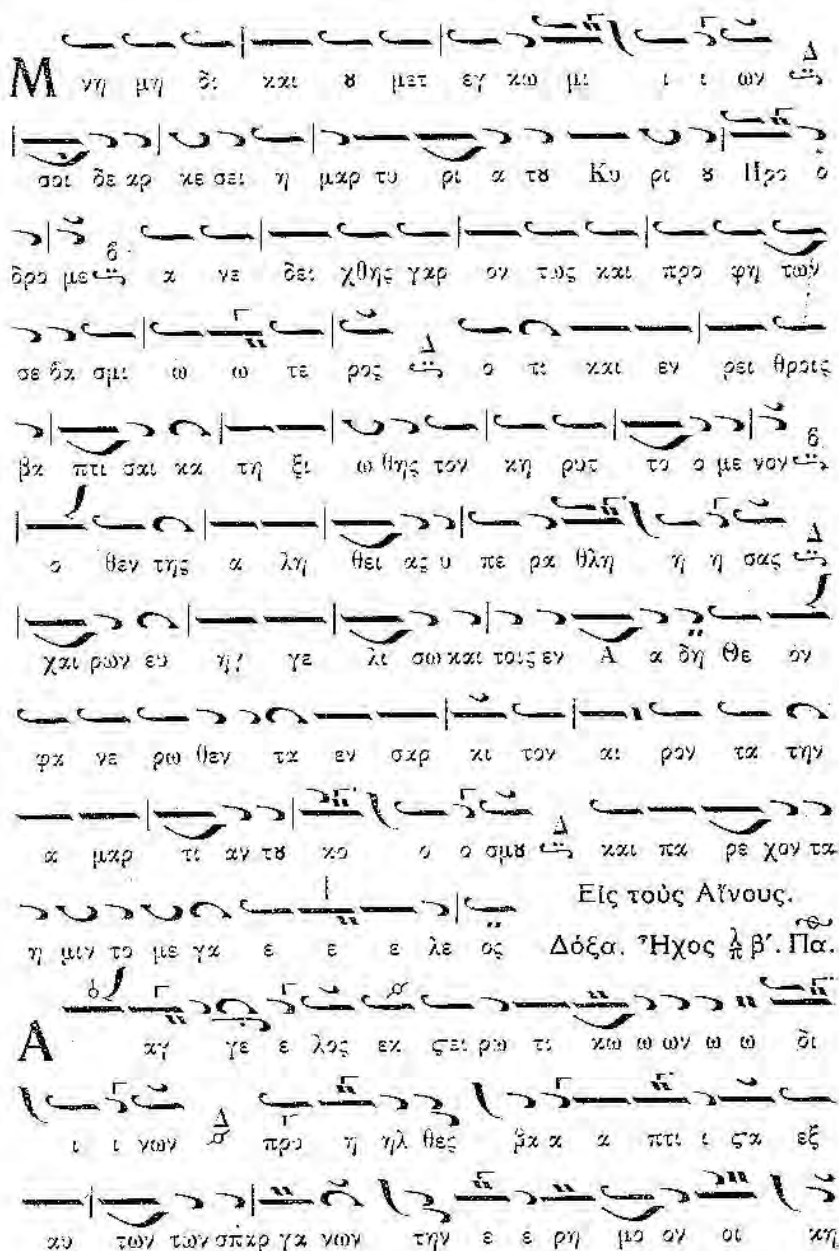 Μ νη μη δι και ȣ μετ εγ κω μι ι ι ων Δ
σοι δε αρ κε σει η μαρ τυ ρι α τȣ Κυ ρι ȣ Προ ο
δρο με δ α νε δει χθης γαρ ον τως και προ φη των
σε βα σμι ω ω τε ρος Δ ο τι και εν ρει θροις
βα πτι σαι κα τη ξι ω θης τον κη ρυτ το ο με νον δ
ο θεν της α λη θει ας υ πε ρα θλη η η σας Δ
χαι ρων ευ ηγ γε λι σω και τοις εν Α α δη Θε ον
φα νε ρω θεν τα εν σαρ κι τον αι ρον τα την
α μαρ τι αν τȣ κο ο ο σμȣ Δ και πα ρε χον τα
η μιν το με γα ε ε ε λε ος
Εἰς τοὺς Αἴνους.
Δόξα. Ἦχος πλ β´. Πα.
Α αγ γε ε λος εκ ϛει ρω τι κω ω ων ω ω δι
ι ι νων Δ προ η ηλ θες βα α α πτι ι ϛα εξ
αυ των των σπαρ γα νων την ε ε ρη μο ον οι κη